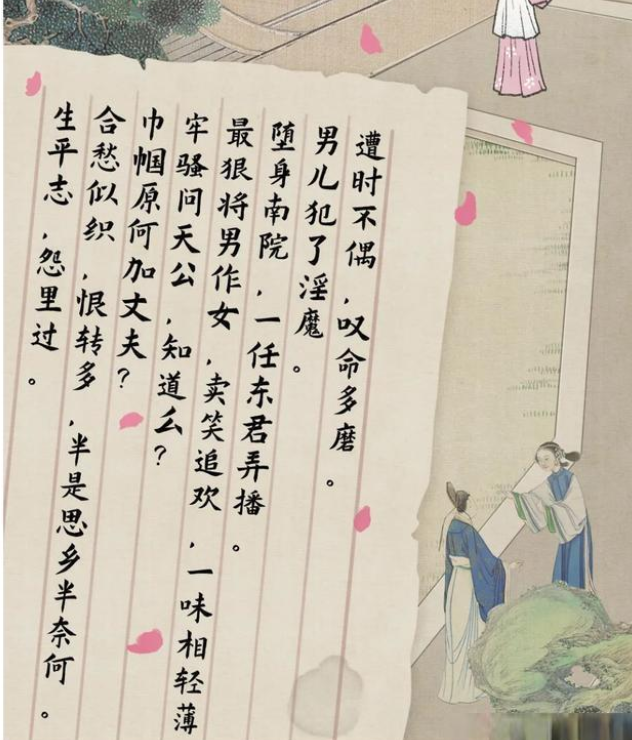 遭时不偶，叹命多磨。
男儿犯了淫魔。
堕身南院，一任东君弄播。
最狠将男作女，卖笑追欢，一味相轻薄
牢骚问天公，知道么？
巾帼原何加丈夫？
合愁似织，恨转多，半是思乡半奈何。
生平志，怨里过。